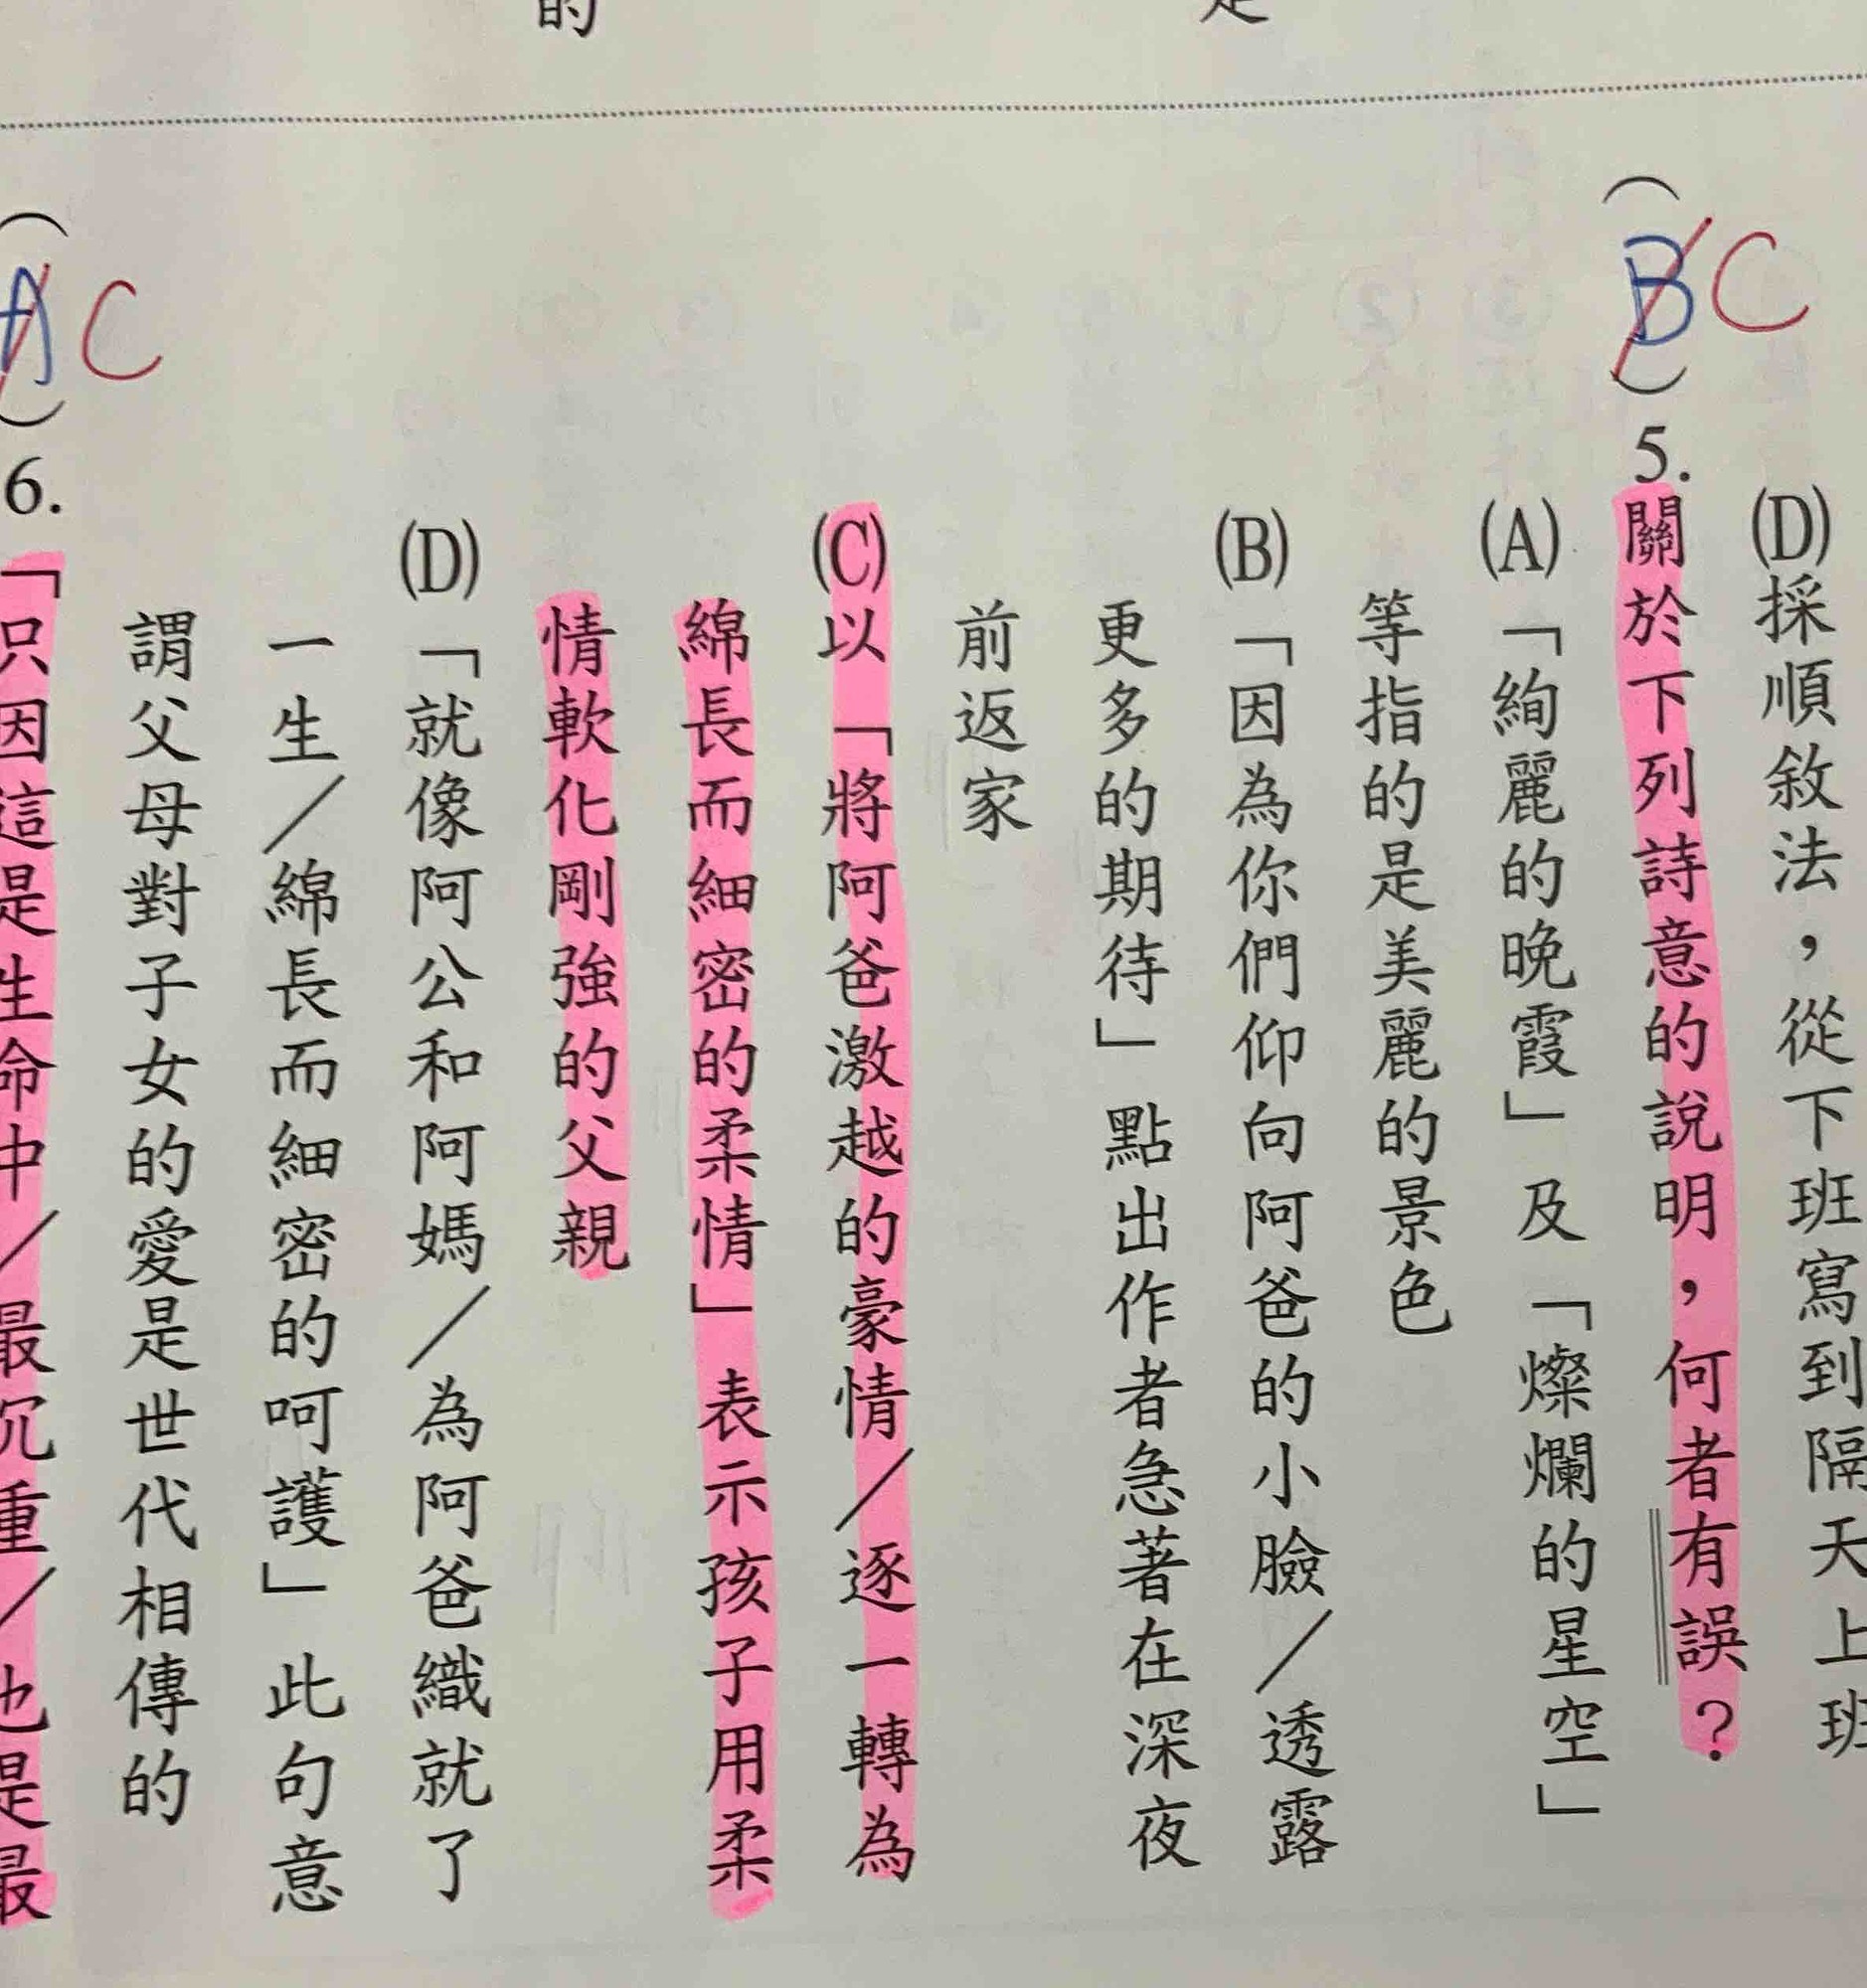 是
的
(D)採順敘法，從下班寫到隔天上班
(BC)5.關於下列詩意的說明，何者有誤？
(A)「絢麗的晚霞」及「燦爛的星空」
等指的是美麗的景色
(B)「因為你們仰向阿爸的小臉／透露
更多的期待」點出作者急著在深夜
前返家
(C)以「將阿爸激越的豪情／逐一轉為
綿長而細密的柔情」表示孩子用柔
情軟化剛強的父親
(D)「就像阿公和阿媽／為阿爸織就了
一生／綿長而細密的呵護」此句意
謂父母對子女的愛是世代相傳的
(AC)6.「只因這是生命中／最沉重／也是最